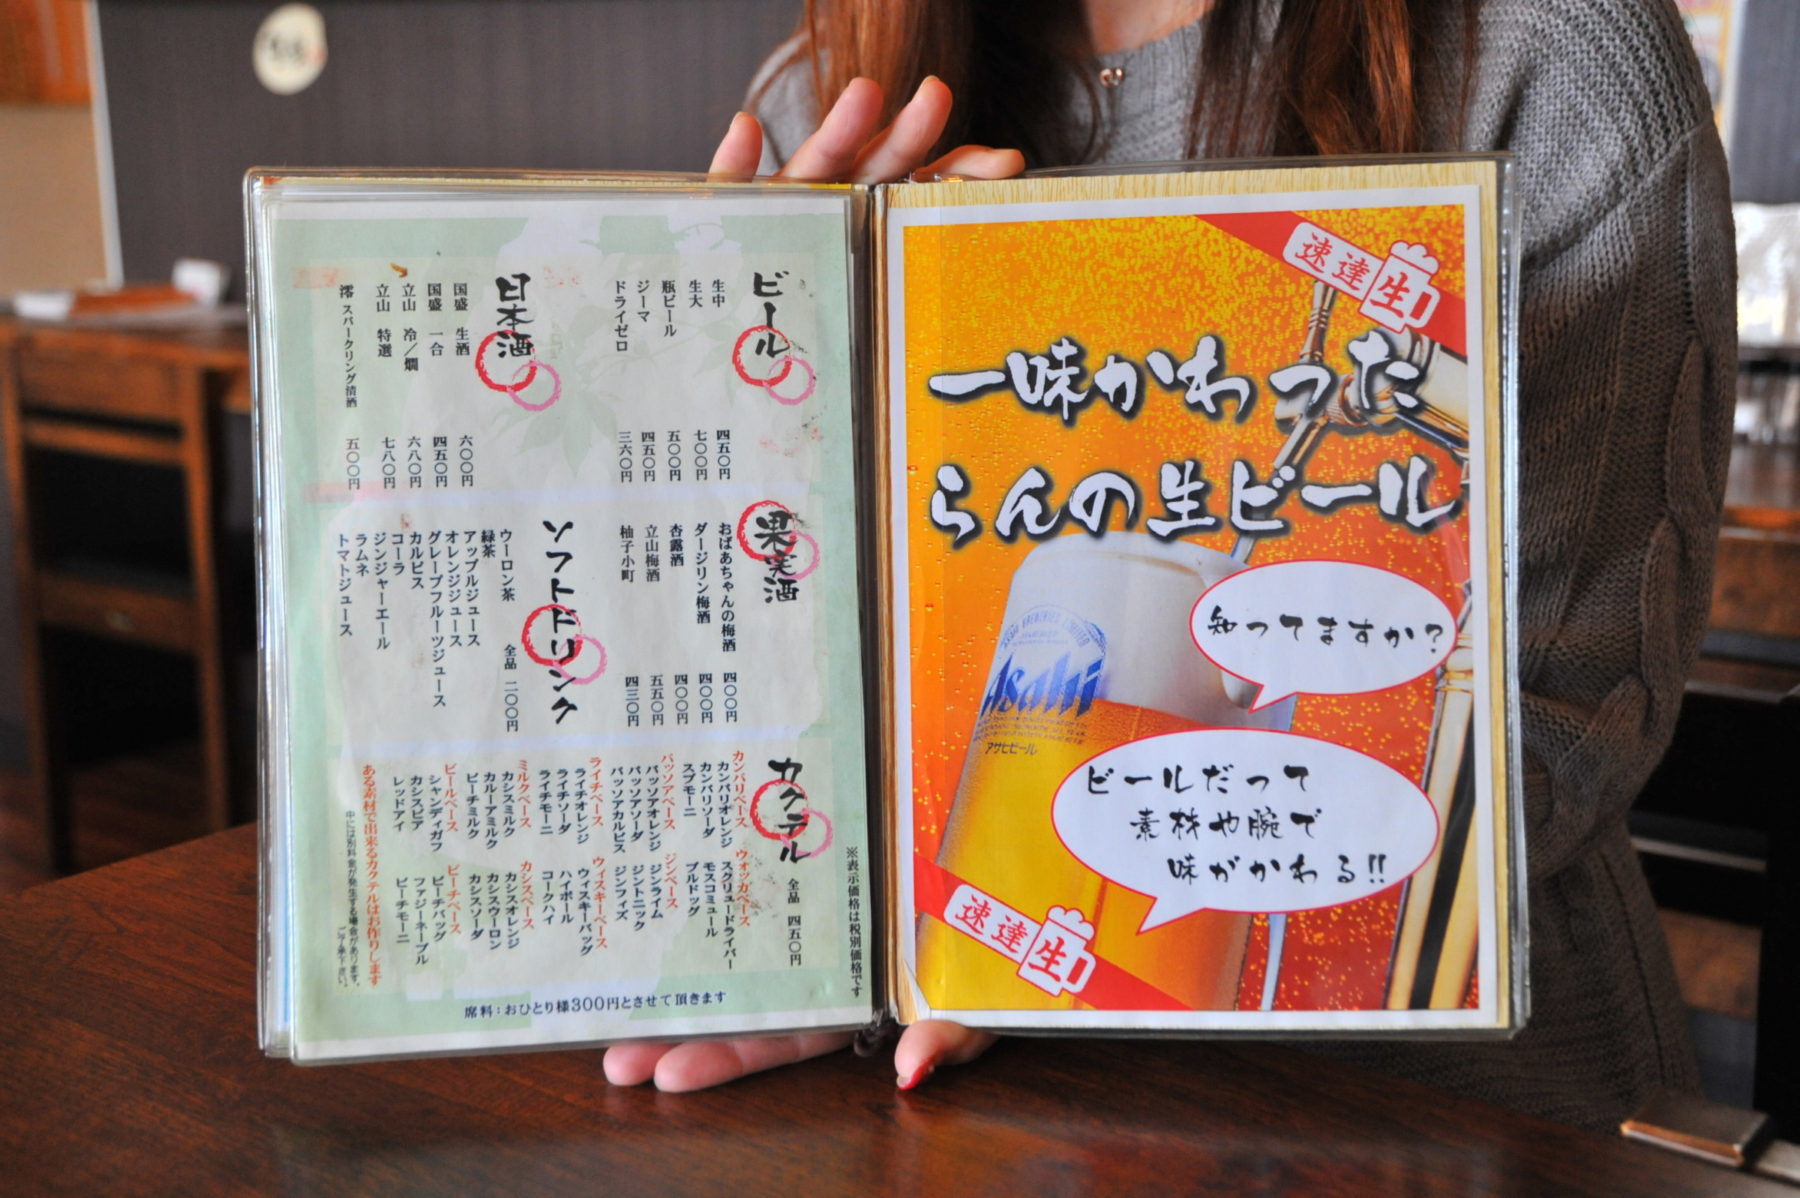 ビール
生中 四五〇円
生大 七〇〇円
瓶ビール 五〇〇円
ジーマ 四五〇円
ドライゼロ 三六〇円
日本酒
国盛 生酒 六〇〇円
国盛 一合 四五〇円
立山 冷／燗 六八〇円
立山 特選 七八〇円
澪 スパークリング清酒 五〇〇円
果実酒
おばあちゃんの梅酒 四〇〇円
ダージリン梅酒 四〇〇円
杏露酒 四〇〇円
立山梅酒 五五〇円
柚子小町 四三〇円
ソフトドリンク
全品 二〇〇円
ウーロン茶
緑茶
アップルジュース
オレンジジュース
グレープフルーツジュース
カルピス
コーラ
ジンジャーエール
ラムネ
トマトジュース
カクテル
全品 四五〇円
カンパリベース
カンパリオレンジ
カンパリソーダ
スプモーニ
パッソアベース
パッソアオレンジ
パッソアソーダ
パッソアカルピス
ライチベース
ライチオレンジ
ライチソーダ
ライチモーニ
ミルクベース
カシスミルク
カルーアミルク
ピーチミルク
ビールベース
シャンディガフ
カシスビア
レッドアイ
ウォッカベース
スクリュードライバー
モスコミュール
ブルドッグ
ジンベース
ジンライム
ジントニック
ジンフィズ
ウィスキーベース
ウィスキーバッグ
ハイボール
コークハイ
カシスベース
カシスオレンジ
カシスウーロン
カシスソーダ
ピーチベース
ピーチバッグ
ファジーネーブル
ピーチモーニ
ある素材で出来るカクテルはお作りします
中には別料金が発生する場合があります。
ご了承下さい。
※表示価格は税別価格です
席料：おひとり様300円とさせて頂きます
速達生
一味かわった
らんの生ビール
知ってますか？
Asahi
アサヒビール
ビールだって
素材や腕で
味がかわる!!
速達生